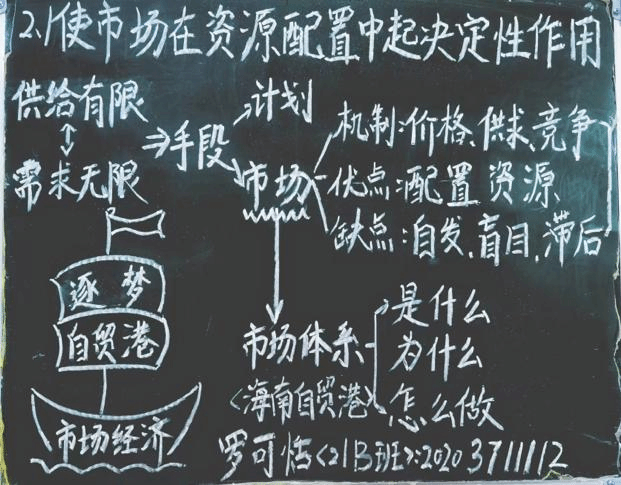 2.1使市场在资源配置中起决定性作用
供给有限
需求无限
手段
计划
市场
机制:价格、供求、竞争
优点:配置资源
缺点:自发、盲目、滞后
市场体系
<海南自贸港>
是什么
为什么
怎么做
逐梦
自贸港
市场经济
罗可恬<21B班>:20203711112